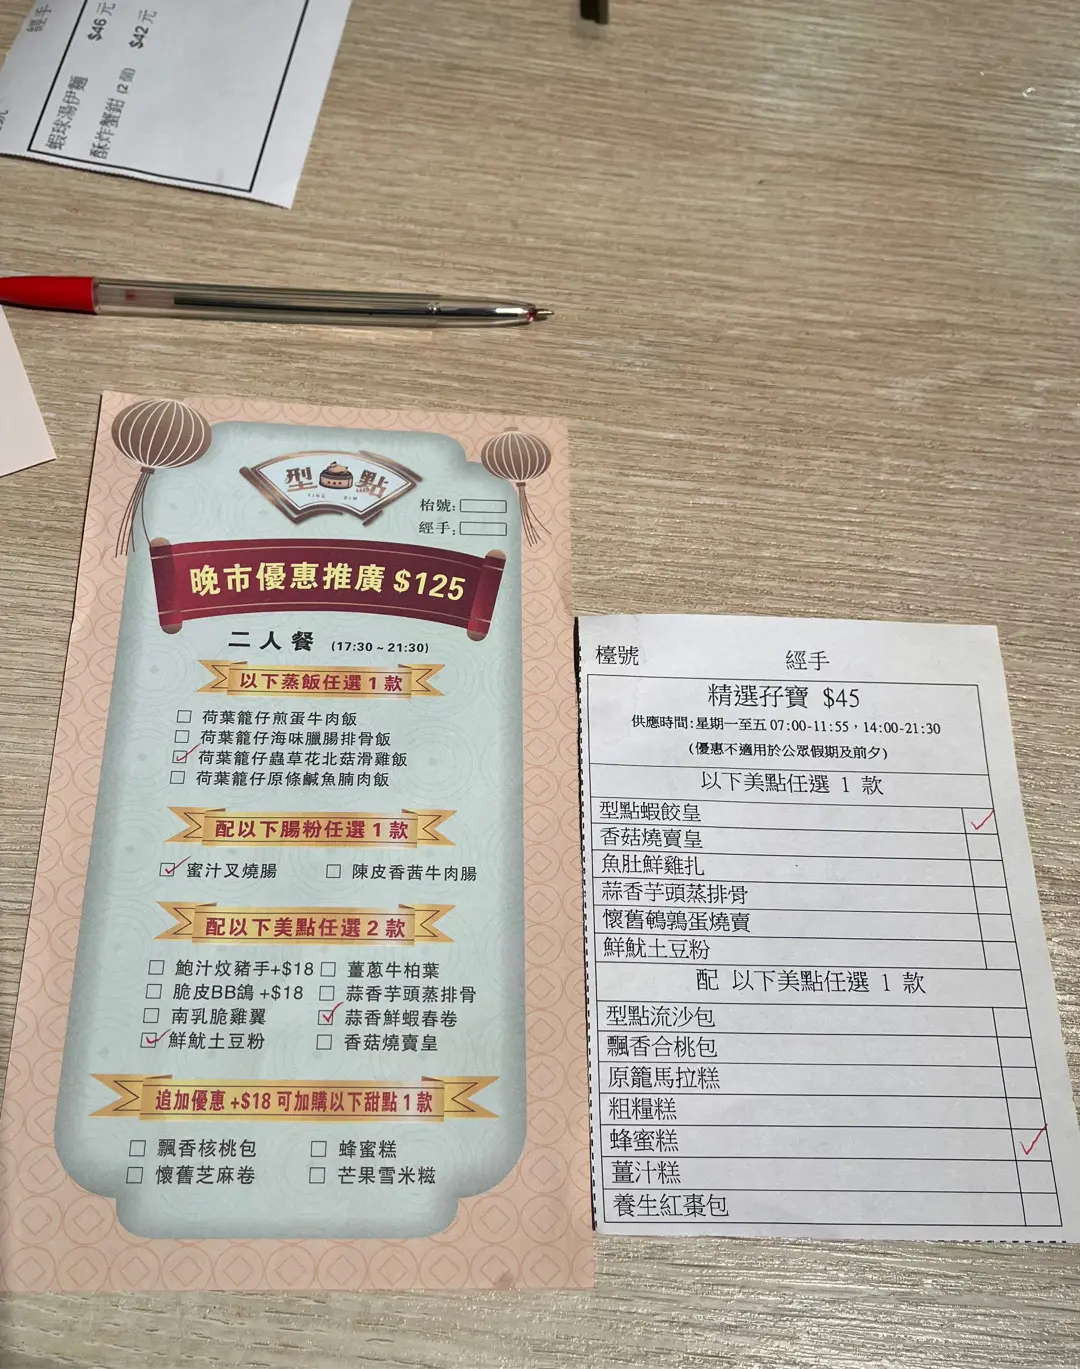 經手
$46 元
$42 元
蝦球湯伊麵
酥炸蟹鉗 (2 個)
型點
枱號:
經手:
晚市優惠推廣 $125
二人餐 (17:30 ~ 21:30)
以下蒸飯任選 1 款
荷葉籠仔煎蛋牛肉飯
荷葉籠仔海味臘腸排骨飯
荷葉籠仔蟲草花北菇滑雞飯
荷葉籠仔原條鹹魚腩肉飯
配以下腸粉任選 1 款
蜜汁叉燒腸 陳皮香茜牛肉腸
配以下美點任選 2 款
鮑汁炆豬手+$18 薑蔥牛柏葉
脆皮BB鴿 +$18 蒜香芋頭蒸排骨
南乳脆雞翼 蒜香鮮蝦春卷
鮮魷土豆粉 香菇燒賣皇
追加優惠 +$18 可加購以下甜點 1 款
飄香核桃包 蜂蜜糕
懷舊芝麻卷 芒果雪米糍
檯號 經手
精選孖寶 $45
供應時間:星期一至五 07:00-11:55，14:00-21:30
(優惠不適用於公眾假期及前夕)
以下美點任選 1 款
型點蝦餃皇
香菇燒賣皇
魚肚鮮雞扎
蒜香芋頭蒸排骨
懷舊鵪鶉蛋燒賣
鮮魷土豆粉
配 以下美點任選 1 款
型點流沙包
飄香合桃包
原籠馬拉糕
粗糧糕
蜂蜜糕
薑汁糕
養生紅棗包